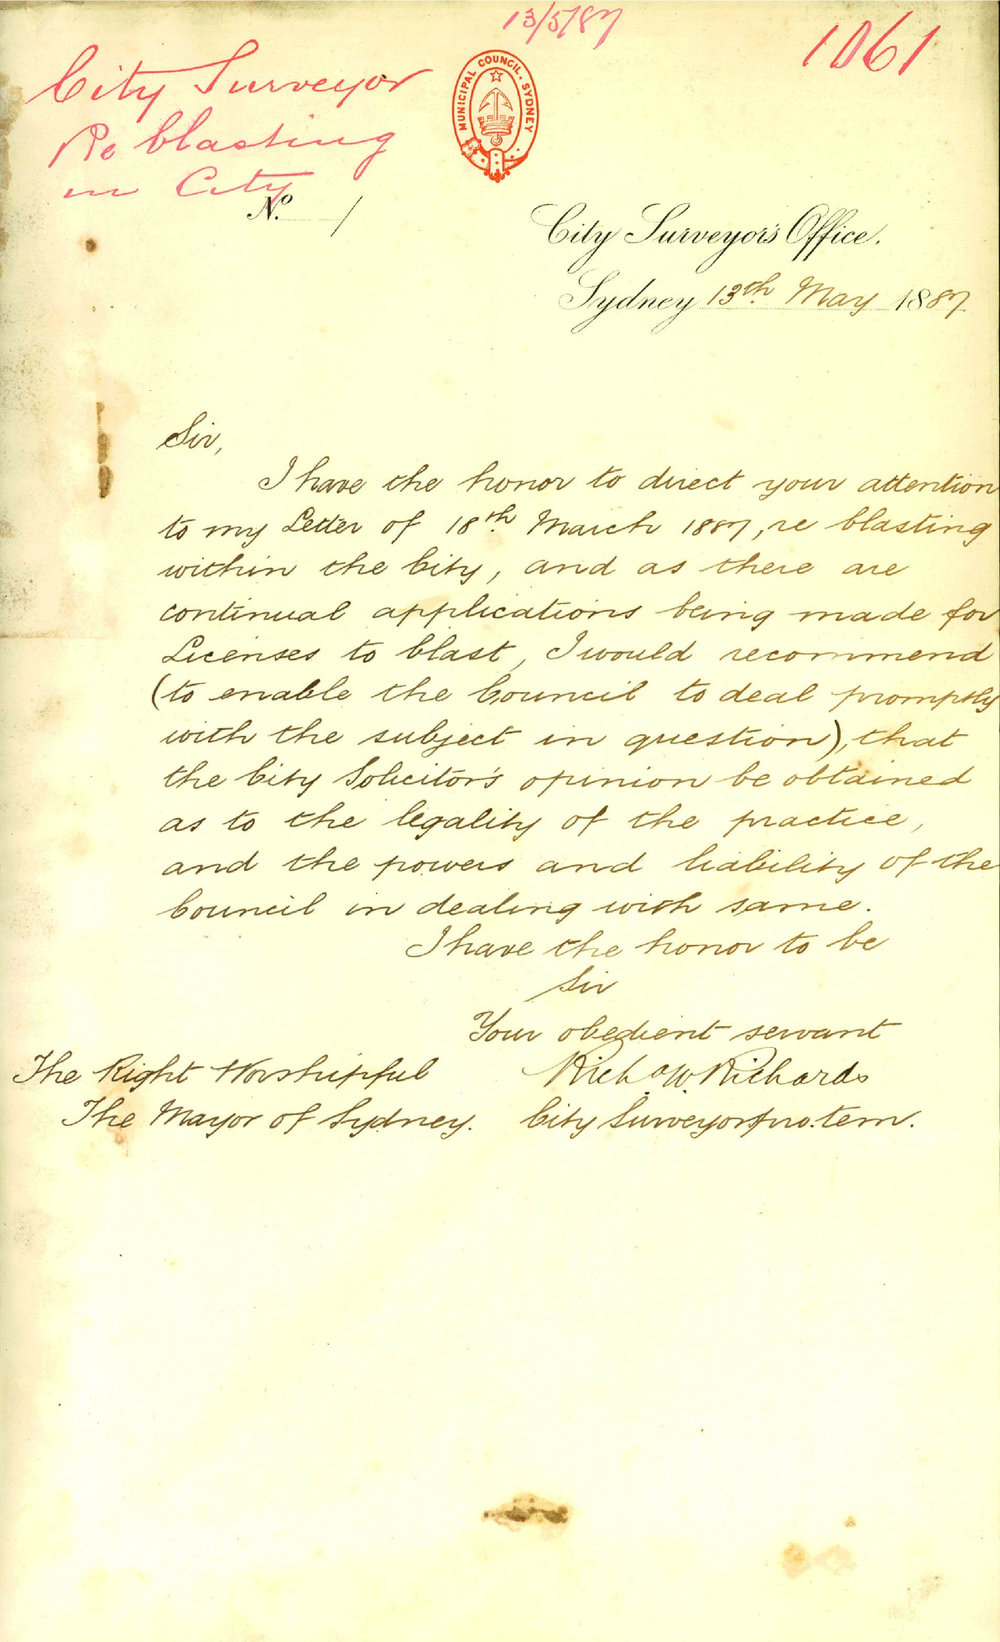 13/5/87
1061
City Surveyor
Re blasting
in City
MUNICIPAL COUNCIL. SYDNEY
No. /
City Surveyor's Office.
Sydney 13th May 1887
Sir,
I have the honor to direct your attention
to my Letter of 18th March 1887, re blasting
within the City, and as there are
continual applications being made for
Licenses to blast, I would recommend
(to enable the Council to deal promptly
with the subject in question), that
the City Solicitor's opinion be obtained
as to the legality of the practice,
and the powers and liability of the
Council in dealing with same.
I have the honor to be
Sir
Your obedient servant
The Right Worshipful
Richd. W. Richards
The Mayor of Sydney.
City Surveyor pro. tem.